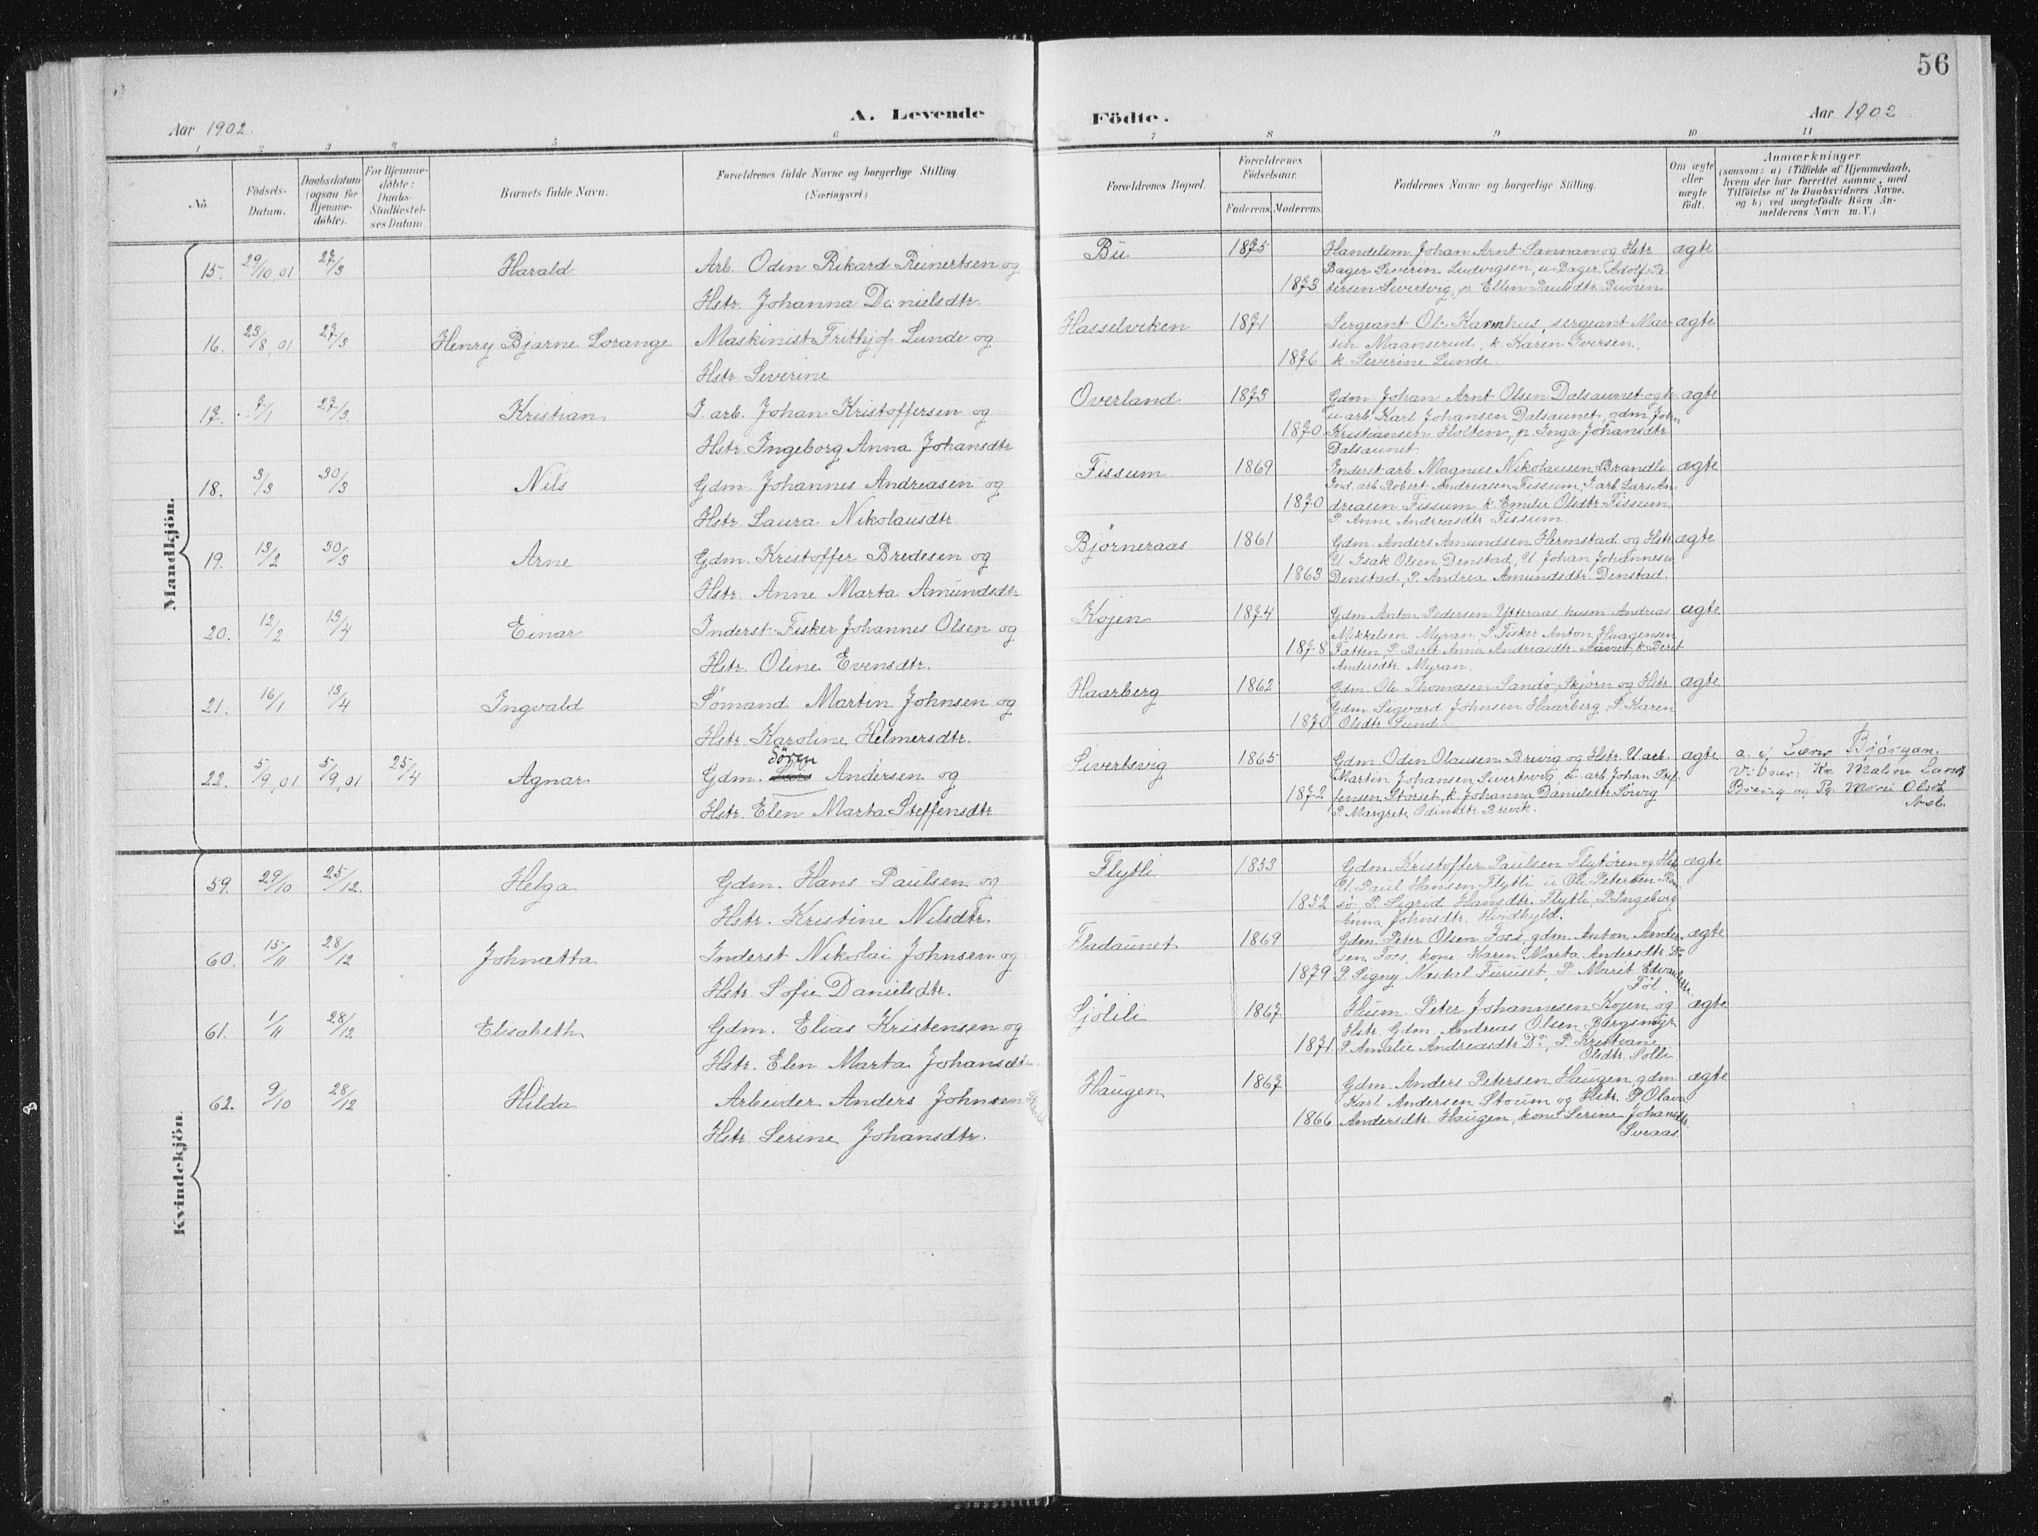 56
Aar 1902.
A. Levende
Födte.
Aar 1902
1 2 3 4 5 6 7 8 9 10 11
No.
Födsels-Datum.
Daabsdatum (ogsaa for Hjemme-döbte).
For Hjemme-döbte: Daabs-Stadfæstel-ses Datum.
Barnets fulde Navn.
Forældrenes fulde Navne og borgerlige Stilling (Næringsvei)
Forældrenes Bopæl.
Forældrenes Födselsaar.
Faderens. Moderens.
Faddernes Navne og borgerlige Stilling.
Om ægte eller uægte födt.
Anmærkninger
(saasom: a) i Tilfælde af Hjemmedaab, hvem der har forrettet samme, med Tilföielse af to Daabsvidners Navne, og b) ved uægtefödte Börn An-melderens Navn m. V.)
Mandkjön.
15. 29/10,01 27/3 Harald Arb. Odin Rikard Reinertsen og
Hstr. Johanna Danielsdtr.
Bu 1875 1873 ægte
Handelsm Johan Arnt Sanman og Hstr
Bager Severin Ludvigsen, u. Bager Adolf Pe-
dersen Sivertvig, p Ellen Paulsdtr
16. 23/8,01 27/3 Henry Bjarne Lorange Maskinist Frithjof Lunde og
Hstr. Severine
Hasselviken 1871 1876 ægte
Sergeant Ol. Karmhus, sergeant Mar-
tin Maanserud, k. Karen Iversen,
k. Severine Lunde.
17. 7/1 27/3 Kristian I. arb. Johan Kristoffersen og
Hstr. Ingeborg Anna Johansdtr
Overland 1873 1870 ægte
Gdm Johan Arnt Olsen Dalsaunet og k
u arb. Karl Johansen Dalsaunet, gdm John
Kristiansen Holten, p. Inga Johansdtr.
Dalsaunet
18. 3/3 30/3 Nils Gdm. Johannes Andreasen og
Hstr. Laura Nikolausdtr.
Fissum 1869 1870 ægte
Inderst arb. Magnus Nikolausen Brandli
Ind. arb Robert Andreasen Fissum, I. arb Lars An-
dreasen Fissum k. Emilie Olsdtr Fissum,
P. Anne Andreasdtr Fissum.
19. 13/2 30/3 Arne Gdm. Kristoffer Bredesen og
Hstr. Anne Marta Amundsdtr
Bjørneraas 1861 1863 ægte
Gdm. Anders Amundsen Hermstad og Hstr
U Isak Olsen Denstad, U. Johan Johannesen
Denstad, P. Andrea Amundsdtr. Denstad.
20. 12/2 13/4 Einar Inderst-Fisker Johannes Olsen og
Hstr. Oline Evensdtr.
Kojen 1874 1878 ægte
Gdm Anton Pedersen Ytteraas husm Andreas
Mikkelsen Myran, I Fisker Anton Haagensen
Satten, P. Berit Anna Andreasdtr k. Beret
Andersdtr. Myran.
21. 16/1 13/4 Ingvald Sømand Martin Johnsen og
Hstr. Karoline Helmersdtr.
Haarberg 1862 1870 ægte
Gdm. Ole Thomasen Sandö, Skjörn og Hstr.
Gdm. Sigvard Johnsen Haarberg, P. Karen
Olsdtr. Sund.
22. 5/9,01 5/9,01 25/4 Agnar Gdm. Sören Andersen og
Hstr. Elen Marta Steffensdtr.
Sivertsvig 1865 1872 ægte
Gdm. Odin Olausen Brevig og Hstr. U arb
Martin Johansen Sivertsvig, u arb Johan Stef-
fensen Störset, k. Johanna Danielsdtr Sörvig
P. Margrete Odinsdtr. Brevik.
a. Bjørgan.
Vidner: Kv. Maline
Brevig og Olsdtr
Kvindekjön.
59. 29/10 25/12. Helga Gdm. Hans Paulsen og
Hstr. Kristine Nilsdtr.
Flytli 1853 1852 ægte
Gdm. Kristoffer Paulsen Flytören og Hstr
U. Paul Hansen Flytli, u Ole Petersen
P. Sigrid Hansdtr. Flytli, P. Ingeborg
Anna Johnsdtr.
60. 15/11 28/12 Johnetta Inderst Nikolai Johnsen og
Hstr. Sofie Danielsdtr.
Fladaunet 1869 1879 ægte
Gdm. Peter Olsen Foes, gdm. Anton Ander-
sen Foes, kone Karen Marta Andersdtr Do
P. Segny Nastal Furuset, P. Marit Edvardsdtr
Föl
61. 1/11 28/12 Elisabeth Gdm. Elias Kristensen og
Hstr. Elen Marta Johansdtr
Sjölili 1867 1871 ægte
Husm. Peter Johannesen Kojen og
Hstr Gdm. Andreas Olsen Bergsmyr
P. Amalie Andreasdtr Do, P. Kristiane
Olsdtr. Solli.
62. 9/10 28/12 Hilda Arbeider Anders Johnsen
Hstr. Serine Johansdtr.
Haugen 1867 1866 ægte
Gdm. Anders Petersen Haugen gdm
Karl Andersen Stoum og Hstr. P. Olava
Andersdtr. Haugen, kone Serine Johansdtr.
Svraas.